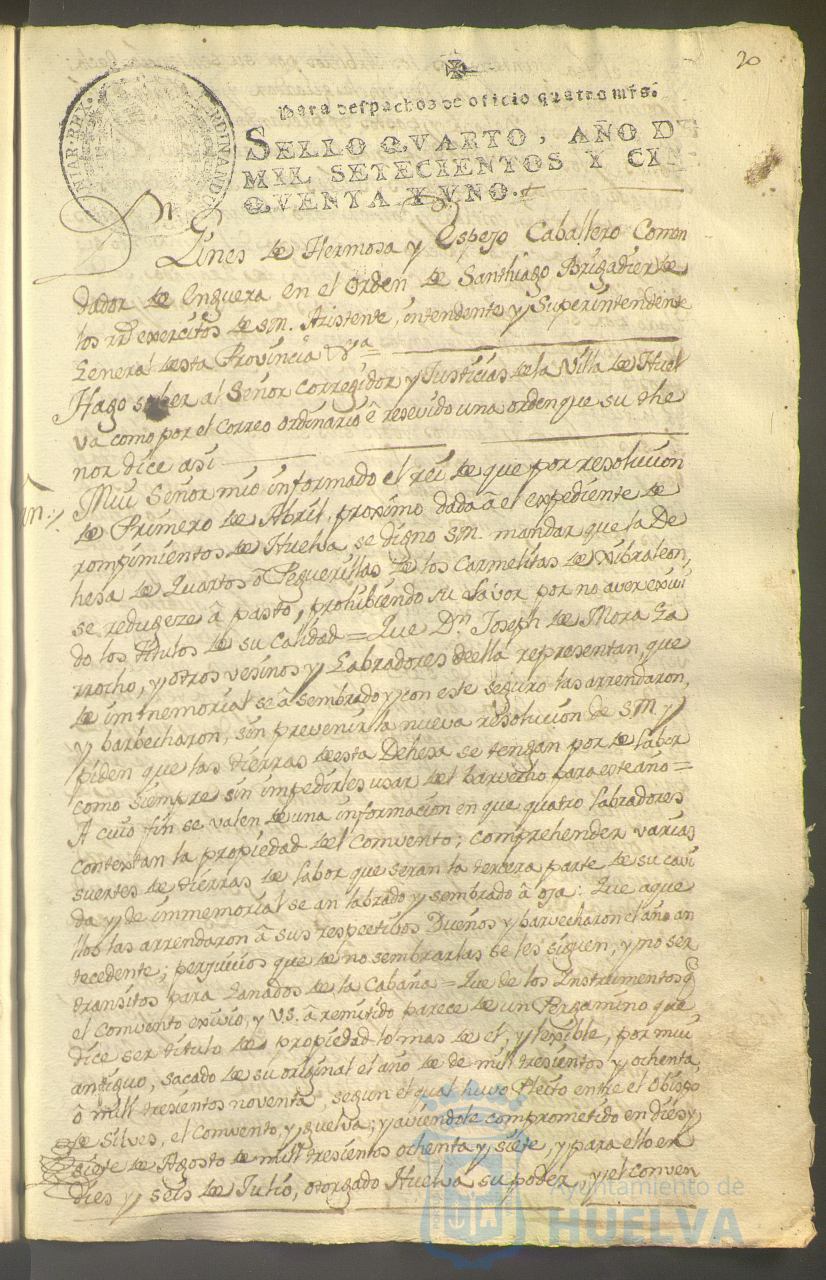 20
Para despachos de oficio quatro mrs.
SELLO QVARTO, AÑO DE
MIL SETECIENTOS Y CIN
QVENTA Y VNO.
NIAR·REX· RDINAND
Dn Gines de Hermosa y Espejo Caballero Comen
dador de Enguera en el Orden de Santhiago Brigadier de
los rrs exercitos de SM. Asistente, intendente y Superintendente
General desta Provincia &a
Hago saber al Señor Corregidor y Justicias de la Villa de Huel
va como por el Correo ordinario ê resevido una orden que su the
nor dice asi
Mui Señor mio informado el rei de que por resolucion
de Primero de Abril proximo dada â el expediente de
rompimientos de Huelva se digno SM. mandar que la De
hesa de Quartos ô Peguerillas de los Carmelitas de Xibraleon,
se redugeze â pasto, prohibiendo su lavor por no aver exivi
do los titulos de su Calidad = Que Dn Joseph de Mora Ga
rrocho, y otros vesinos y Labradores de ella representan, que
de imnemorial se â sembrado y con este seguro las arrendaron,
y barbecharon, sin prevenir la nueva resolucion de SM y
piden que las tierras de esta Dehesa se tengan por de labor
como siempre sin impedirles usar del barvecho para este año =
A cuio fin se valen de una informacion en que quatro labradores
contextan la propiedad del Convento; comprehender varias
suertes de tierras de labor que seran la tercera parte de su cavi
da y de immemorial se an labrado y sembrado â oja: Que aque
llos las arrendaron â sus respectibos Dueños y barvecharon el año an
tecedente; perjuicios que de no sembrarlas se les siguen, y no ser
transitos para Ganados de la Cabaña = Que de los Instrumentos q
el Convento exivio, y V.S. â remitido parece de un Pergamino que
dice ser titulo de propiedad lo mas de el, y lexible, por mui
antiguo, sacado de su original el año de de mill tresientos y ochenta,
ô mill tresientos noventa, segun el qual huvo Pleito entre el Obispo
de Silves, el Convento, y guelva; y aviendole comprometido en dies y
siete de Agosto de mill tresientos ochenta y siete, y para ello en
dies y seis de Julio, otorgado Huelva su poder, y el conven
Ayuntamiento de
HUELVA